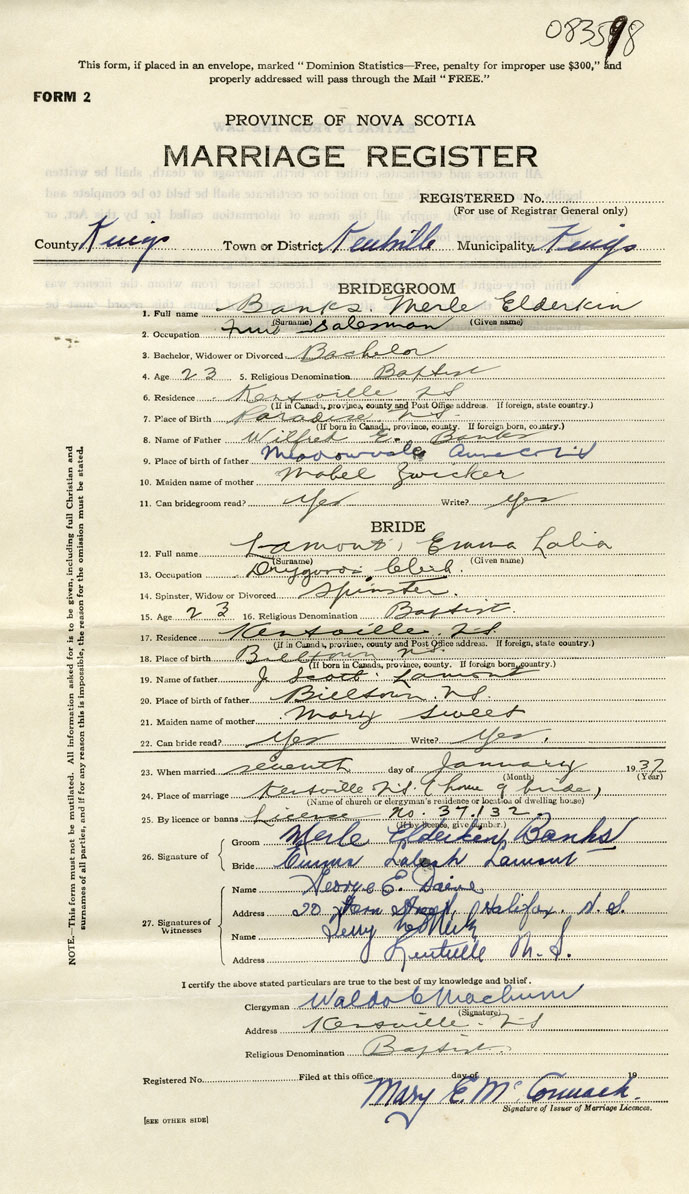 083598
This form, if placed in an envelope, marked "Dominion Statistics—Free, penalty for improper use $300," and
properly addressed will pass through the Mail "FREE."
FORM 2
PROVINCE OF NOVA SCOTIA
MARRIAGE REGISTER
REGISTERED No.
(For use of Registrar General only)
County Kings Town or District Kentville Municipality Kings
BRIDEGROOM
1. Full name Banks, Merle Elderkin
(Surname) (Given name)
2. Occupation Salesman
3. Bachelor, Widower or Divorced Bachelor
4. Age 23 5. Religious Denomination Baptist
6. Residence Kentville NS
(If in Canada, province, county and Post Office address. If foreign, state country.)
7. Place of Birth Paradise NS
(If born in Canada, province, county. If foreign born, country.)
8. Name of Father Wilfred E. Banks
9. Place of birth of father Meadowvale Anna Co NS
10. Maiden name of mother Mabel Zwicker
11. Can bridegroom read? Yes Write? Yes
BRIDE
12. Full name Lamont, Emma
(Surname) (Given name)
13. Occupation Drygoods Clerk.
14. Spinster, Widow or Divorced Spinster.
15. Age 23 16. Religious Denomination Baptist.
17. Residence Kentville. NS.
(If in Canada, province, county and Post Office address. If foreign, state country.)
18. Place of birth Billtown NS.
(If born in Canada, province, county. If foreign born, country.)
19. Name of father J Scott Lamont
20. Place of birth of father Billtown. NS.
21. Maiden name of mother Mary Sweet
22. Can bride read? Yes Write? Yes.
23. When married seventh day of January 1937
(Month) (Year)
24. Place of marriage Kentville NS. (home of bride)
(Name of church or clergyman's residence or location of dwelling house)
25. By licence or banns License no. 37132.
(If by licence, give number.)
26. Signature of
Groom Merle Elderkin Banks
Bride Emma Lamont
27. Signatures of Witnesses
Name George E.
Address 20 Street, Halifax, N.S.
Name
Address Kentville N.S.
NOTE.—This form must not be mutilated. All information asked for is to be given, including full Christian and
surnames of all parties, and if for any reason this is impossible, the reason for the omission must be stated.
I certify the above stated particulars are true to the best of my knowledge and belief.
Clergyman Waldo C Machum
(Signature)
Address Kentville. NS
Religious Denomination Baptist.
Registered No. Filed at this office day of 19
Mary E. McCormack.
Signature of Issuer of Marriage Licences.
[SEE OTHER SIDE]